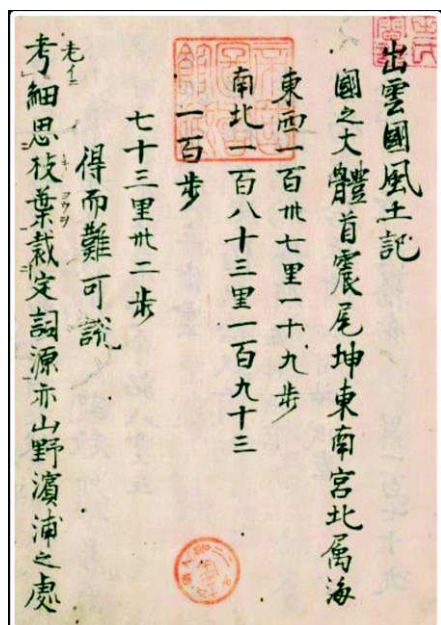 出雲國風土記
國之大體首震尾坤東南宮北属海
東西一百卅七里一十九歩
南北一百八十三里一百九十三
一百歩
七十三里卅二歩
得而難可誤
老イ
考細思枝葉裁定詞源亦山野濱浦之處